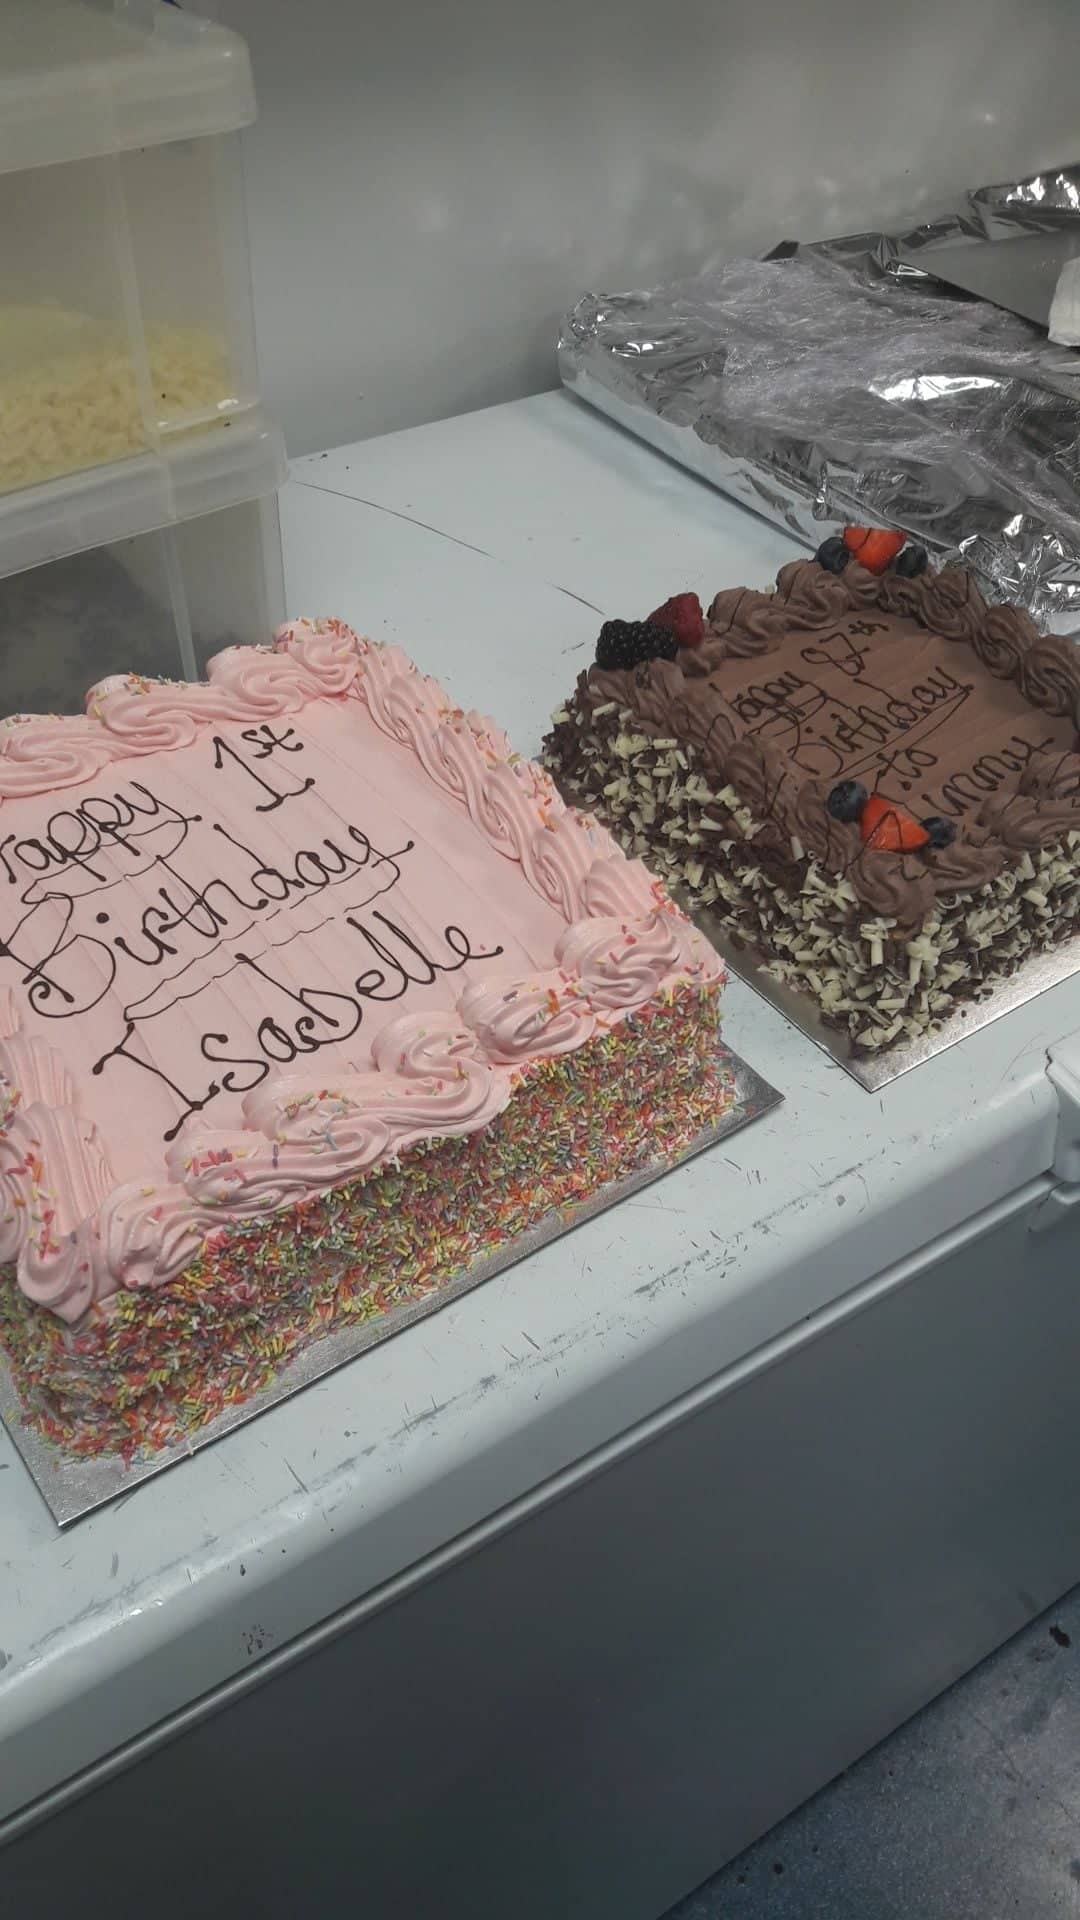 Happy 1st
Birthday
Isabelle
Happy 87th
Birthday
to